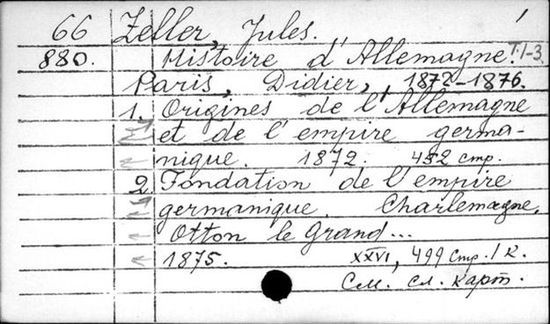 66 Zeller, Jules. 1
880. Histoire d'Allemagne. T.1-3.
Paris, Didier, 1872-1876.
1. Origines de l'Allemagne
et de l'empire germa-
nique. 1872. 452 стр.
2. Fondation de l'empire
germanique. Charlemagne,
Otton le Grand...
1875. XXVI, 499 стр. 1 к.
См. сл. карт.